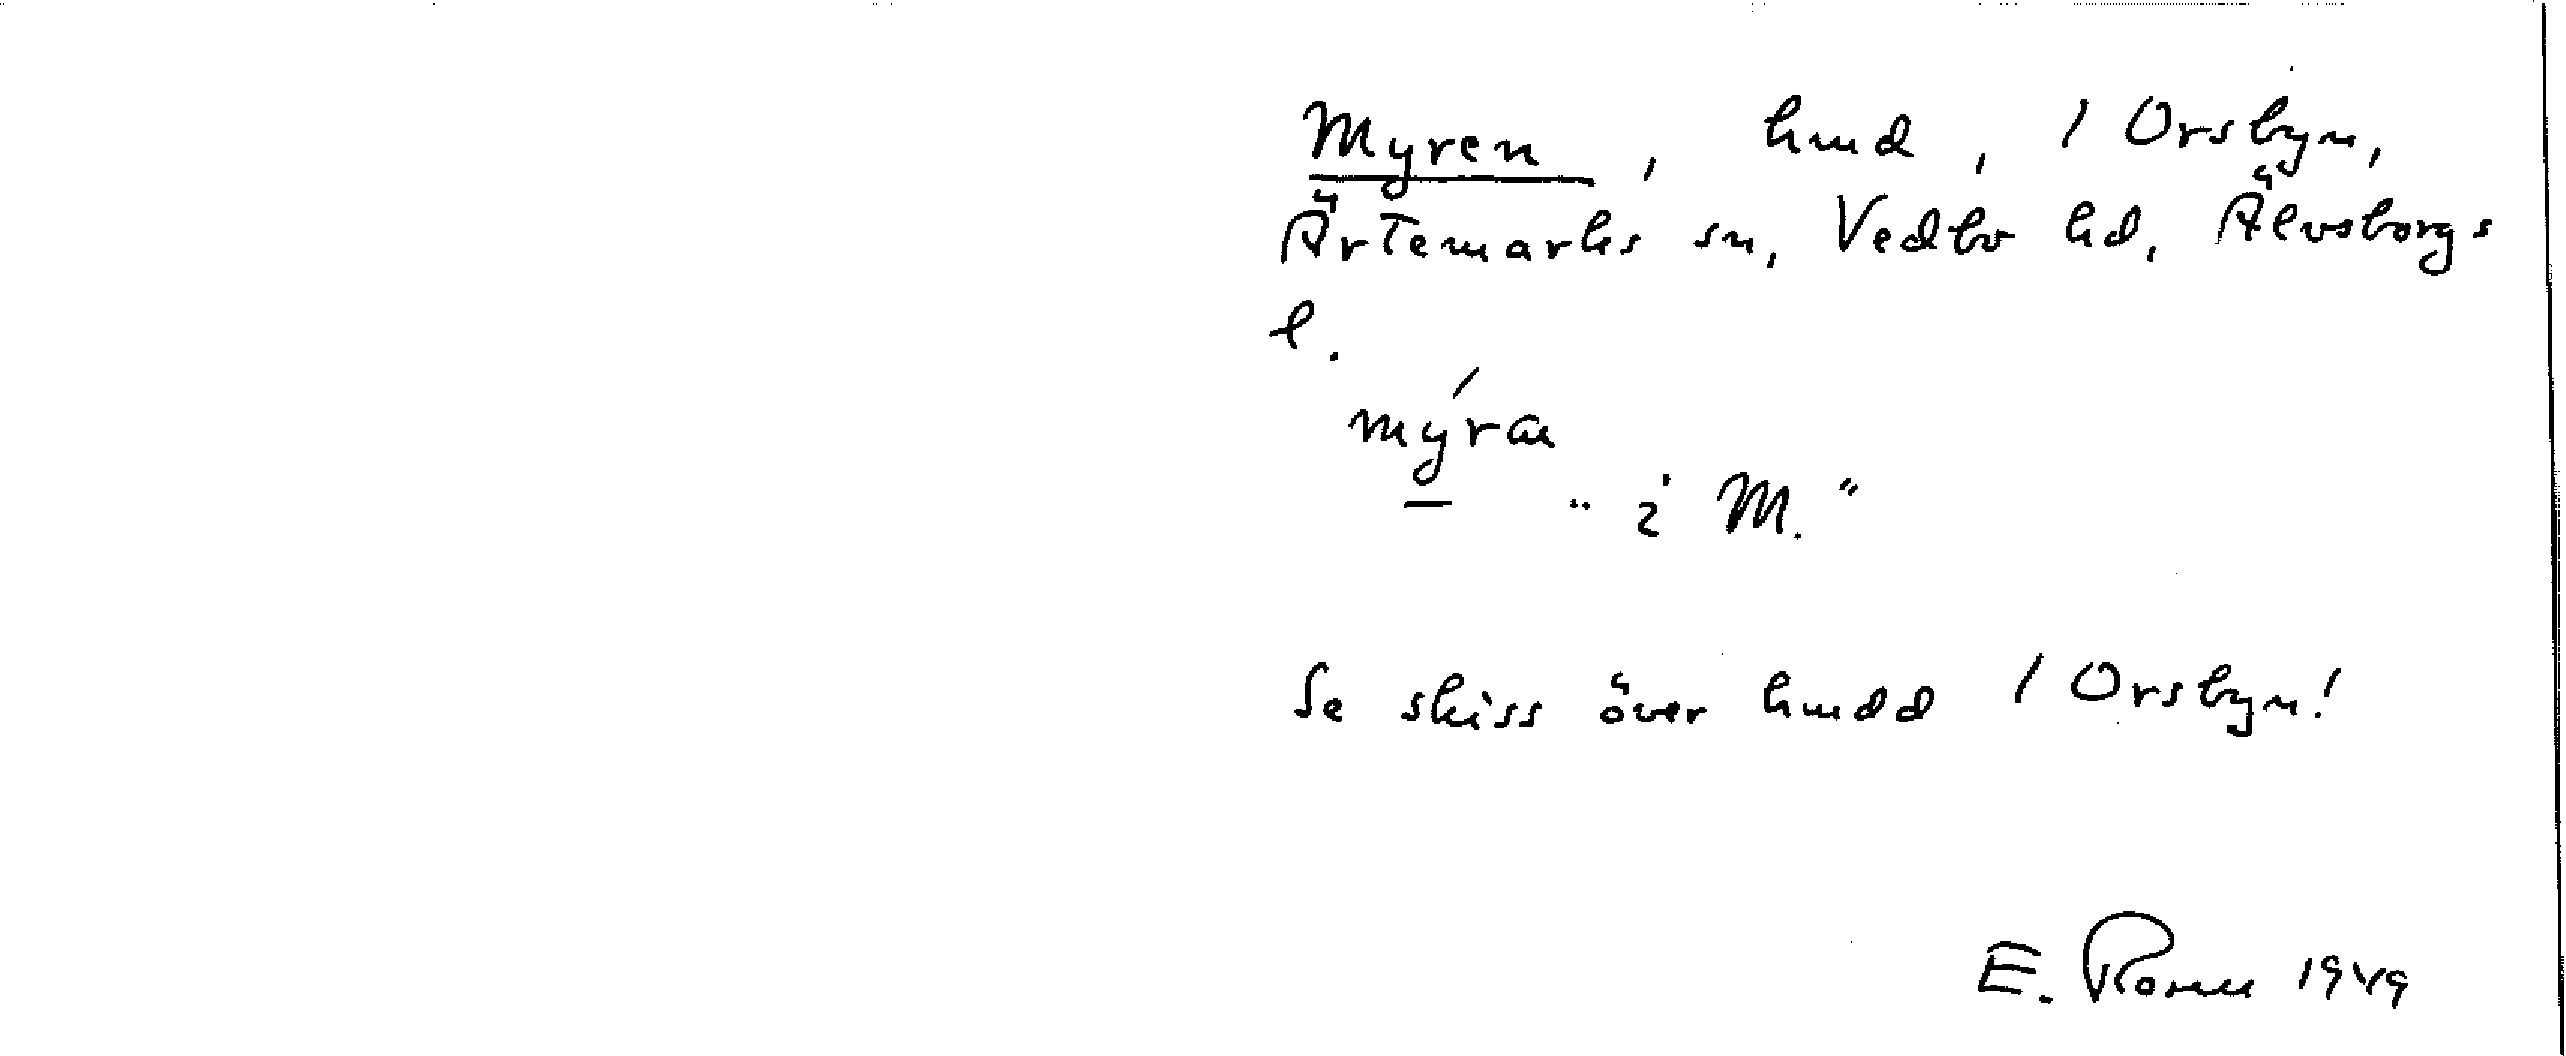 Myren, hmd, 1 Orsbyn,
Ärtemarks sn, Vedbo hd, Älvsborgs
l.
mýræ
— "i M."
Se skiss över hmdd 1 Orsbyn!
E. 1949